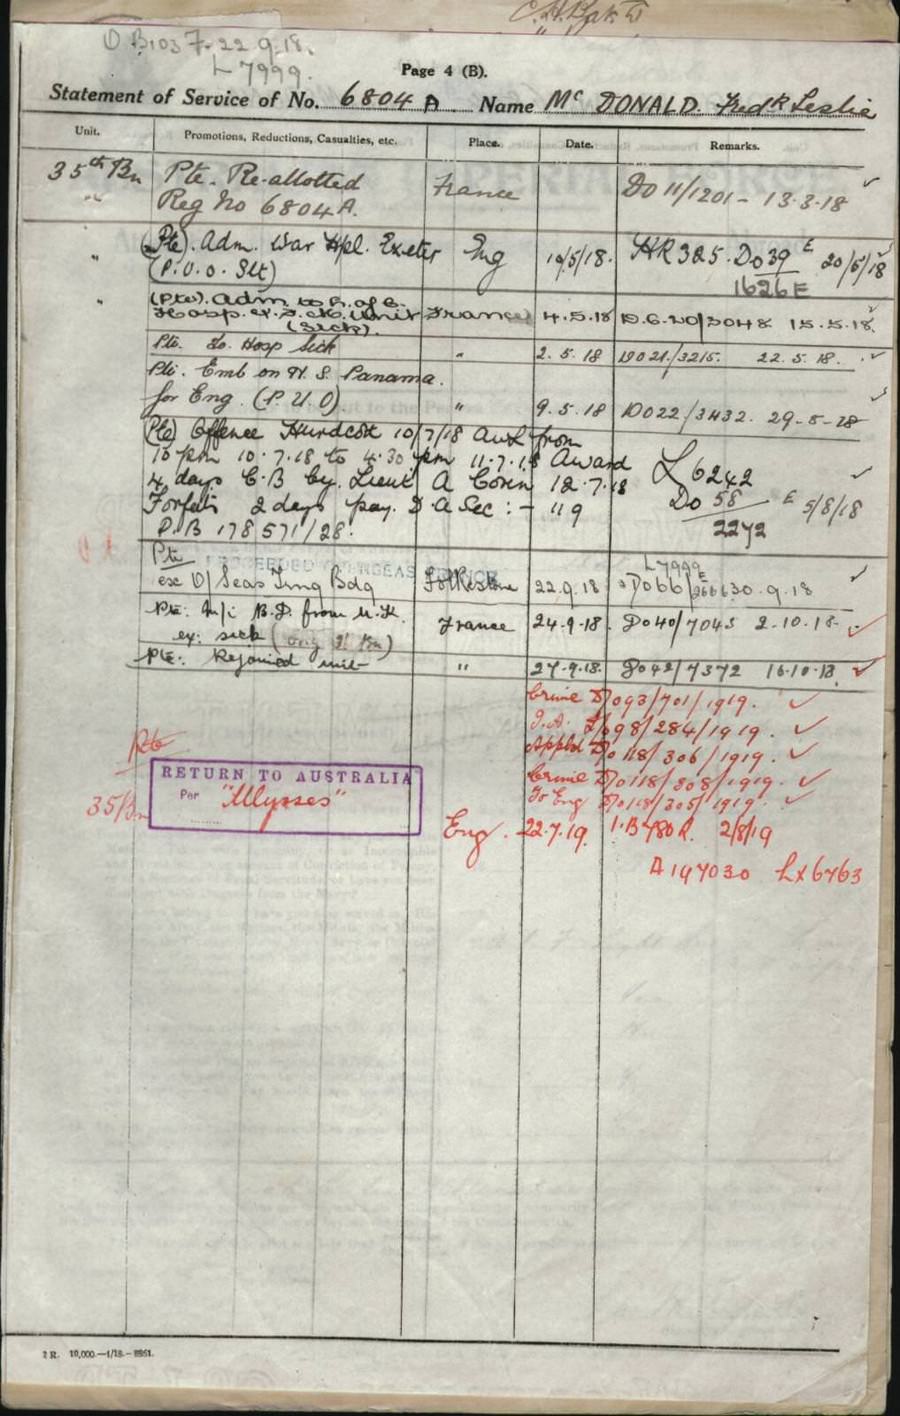 O B103 7-22.9.18.
L 7999.
Page 4 (B).
Statement of Service of No. 6804 A Name Mc DONALD. Fredk Leslie
Unit. Promotions, Reductions, Casualties, etc. Place. Date. Remarks.
35th Bn Pte. Re-allotted France DO 11/1201 - 13.3.18
" Reg No 6804A.
" (Pte). Adm. War Hpl. Exeter Eng 10/5/18. HR 325. Do 39 E 20/5/18
(P.U.O. Slt) 1626E
" (Pte). Adm to
Hosp. France 4.5.18 15.5.18.
(Sick).
Pte. To Hosp Sick " 2.5.18 DO21/3215. 22.5.18.
Pte. Emb on H.S. Panama.
for Eng. (P.U.O) " 9.5.18 DO22/3432. 29-5-18
(Pte) Offence Hurdcott 10/7/18 AWL from
10 pm 10.7.18 to 4.30 pm 11.7.18 Award L 6242
4 days C.B by Lieut A 12.7.18 Do 58 E 5/8/18
Forfeits 2 days pay. D.A Sec :- 119 2272
P.B 178571/28.
Pte PROCEEDED OVERSEAS L7999
ex O/Seas Trng Bdg Folkestone 22.9.18 Do66/ 30.9.18
Pte: M/i B.D. from U.K. France 24.9.18. Do40/7043 2.10.18.
ex: sick
Pte: Rejoined unit " 27.9.18. Do42/7372 16.10.18
Crime Do93/701/1919.
Do98/284/1919.
Appld Do118/306/1919.
Crime Do118/308/1919.
To Eng Do118/305/1919.
Rtd
RETURN TO AUSTRALIA
35/Bn Per "Ulysses"
Eng. 22.7.19. 2/8/19
A 147030 Lx 6763
10,000.—1/18.—8851.